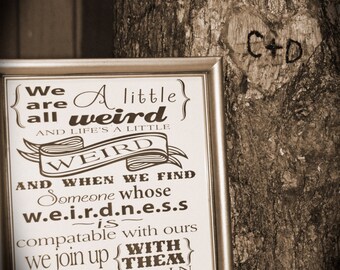 C+D
{We are all A little weird}
AND LIFE'S A LITTLE
WEIRD
AND WHEN WE FIND
Someone whose
w.e.i.r.d.n.e.s.s
is
compatable with ours
we join up {WITH
THEM
IN